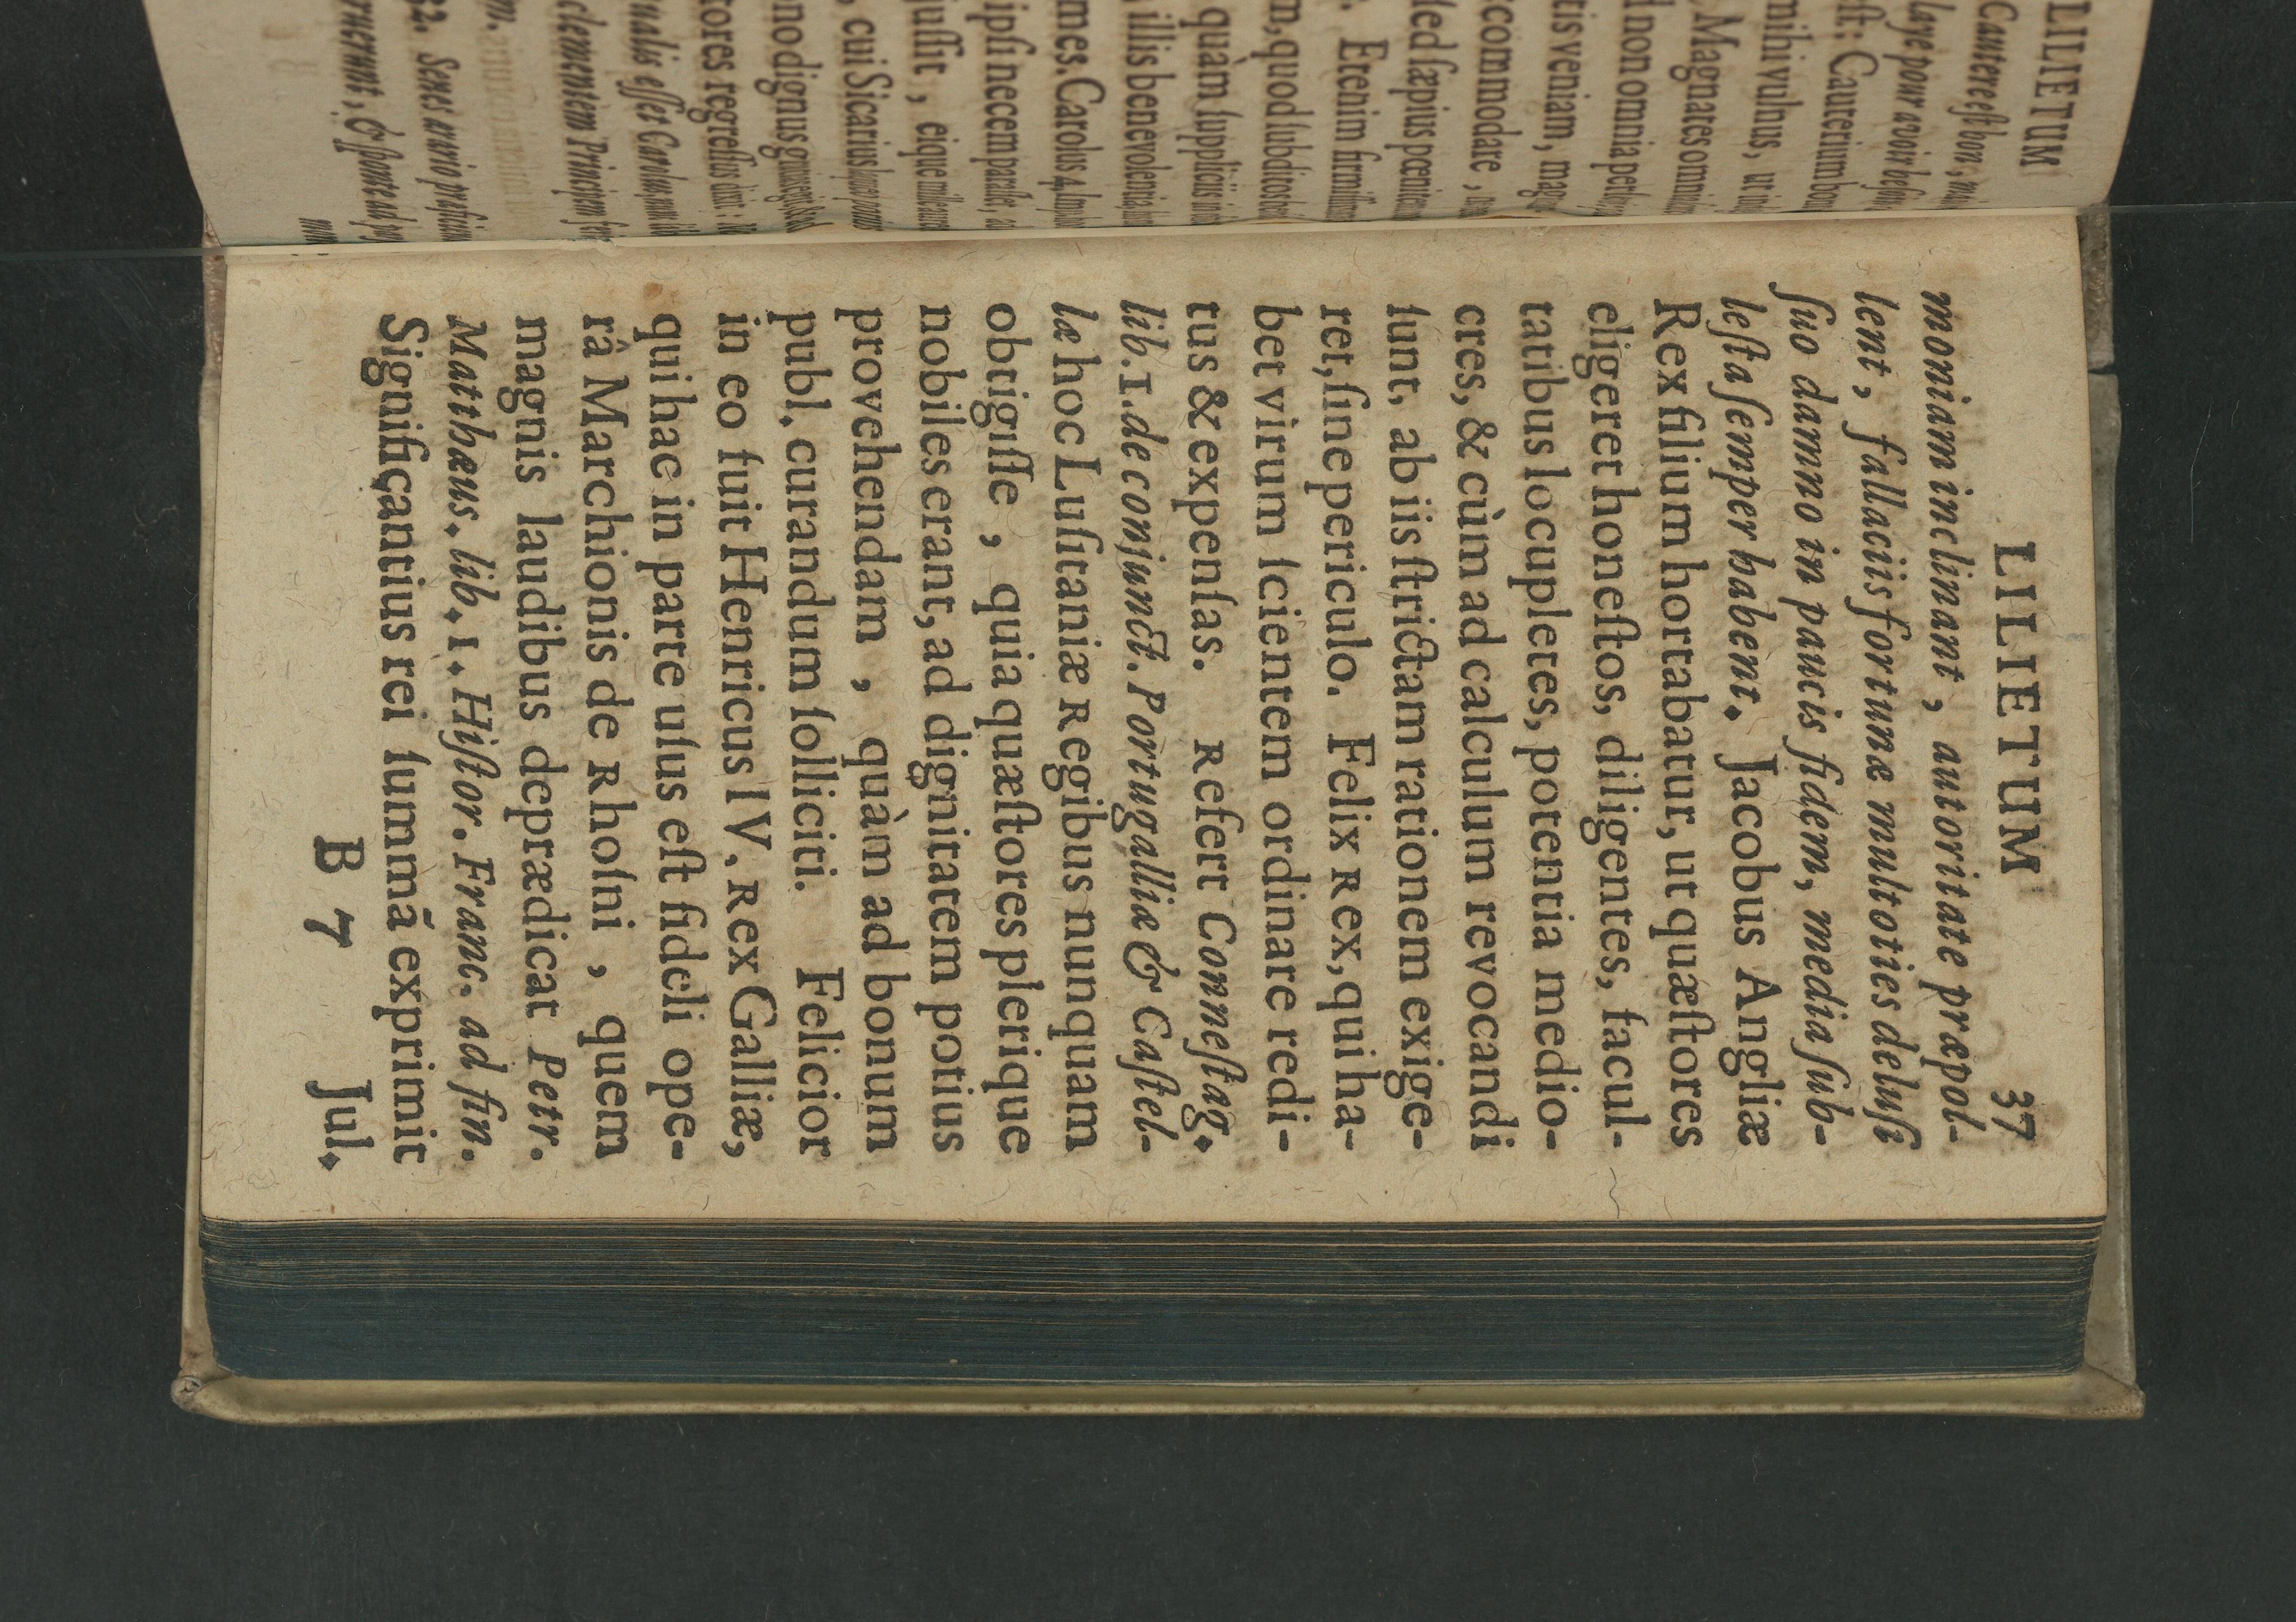 LILIETUM
Cautere eſt bon, mai
laye pour avoir beſoin
eſt: Cauterium bon
mihi vulnus, ut in
Magnates omni
d non omnia per
tis veniam, mag
ccommodare,
ſed ſæpius pœnite
Etenim firmi
m, quod ſubditos
quàm ſuppliciis
illis benevolentia
mes. Carolus 4.
ipſi necem paraſſet,
juſſit, eique mille
, cui Sicarius
no dignus
tores regreſſus dixi:
ualis eſſet Carolus, non
clementem Principem
m.
32. Senes ærario præficien
ruerunt, & ſponte ad
mon
LILIETUM 37
moniam inclinant, autoritate præpol-
lent, fallaciis fortunæ multoties deluſi
ſuo damno in paucis fidem, media ſub-
leſta ſemper habent. Jacobus Angliæ
Rex filium hortabatur, ut quæſtores
eligeret honeſtos, diligentes, facul-
tatibus locupletes, potentia medio-
cres, & cùm ad calculum revocandi
ſunt, ab iis ſtrictam rationem exige-
ret, ſine periculo. Felix Rex, qui ha-
bet virum ſcientem ordinare redi-
tus & expenſas. Refert Conneſtag.
lib. 1. de conjunct. Portugalliæ & Caſtel-
læ hoc Luſitaniæ Regibus nunquam
obtigiſſe, quia quæſtores plerique
nobiles erant, ad dignitatem potius
provehendam, quàm ad bonum
publ. curandum ſolliciti. Felicior
in eo fuit Henricus IV. Rex Galliæ,
qui hac in parte uſus eſt fideli ope-
râ Marchionis de Rhoſni, quem
magnis laudibus deprædicat Petr.
Matthæus. lib. 1. Hiſtor. Franc. ad fin.
Significantius rei ſummã exprimit
B 7 Jul.